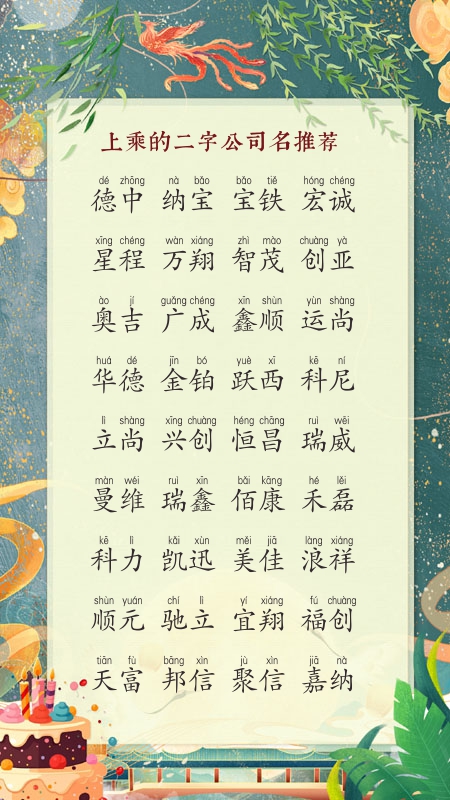 上乘的二字公司名推荐
dé zhōng nà bǎo bǎo tiě hóng chéng
德中 纳宝 宝铁 宏诚
xīng chéng wàn xiáng zhì mào chuàng yà
星程 万翔 智茂 创亚
ào jí guǎng chéng xīn shùn yùn shàng
奥吉 广成 鑫顺 运尚
huá dé jīn bó yuè xī kē ní
华德 金铂 跃西 科尼
lì shàng xīng chuàng héng chāng ruì wēi
立尚 兴创 恒昌 瑞威
màn wéi ruì xīn bǎi kāng hé lěi
曼维 瑞鑫 佰康 禾磊
kē lì kǎi xùn měi jiā làng xiáng
科力 凯迅 美佳 浪祥
shùn yuán chí lì yí xiáng fú chuàng
顺元 驰立 宜翔 福创
tiān fù bāng xìn jù xìn jiā nà
天富 邦信 聚信 嘉纳